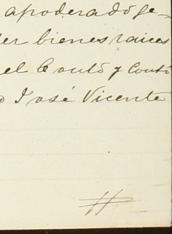 apoderado ge-
der bienes raices
el Couto y Couto
José Vicente